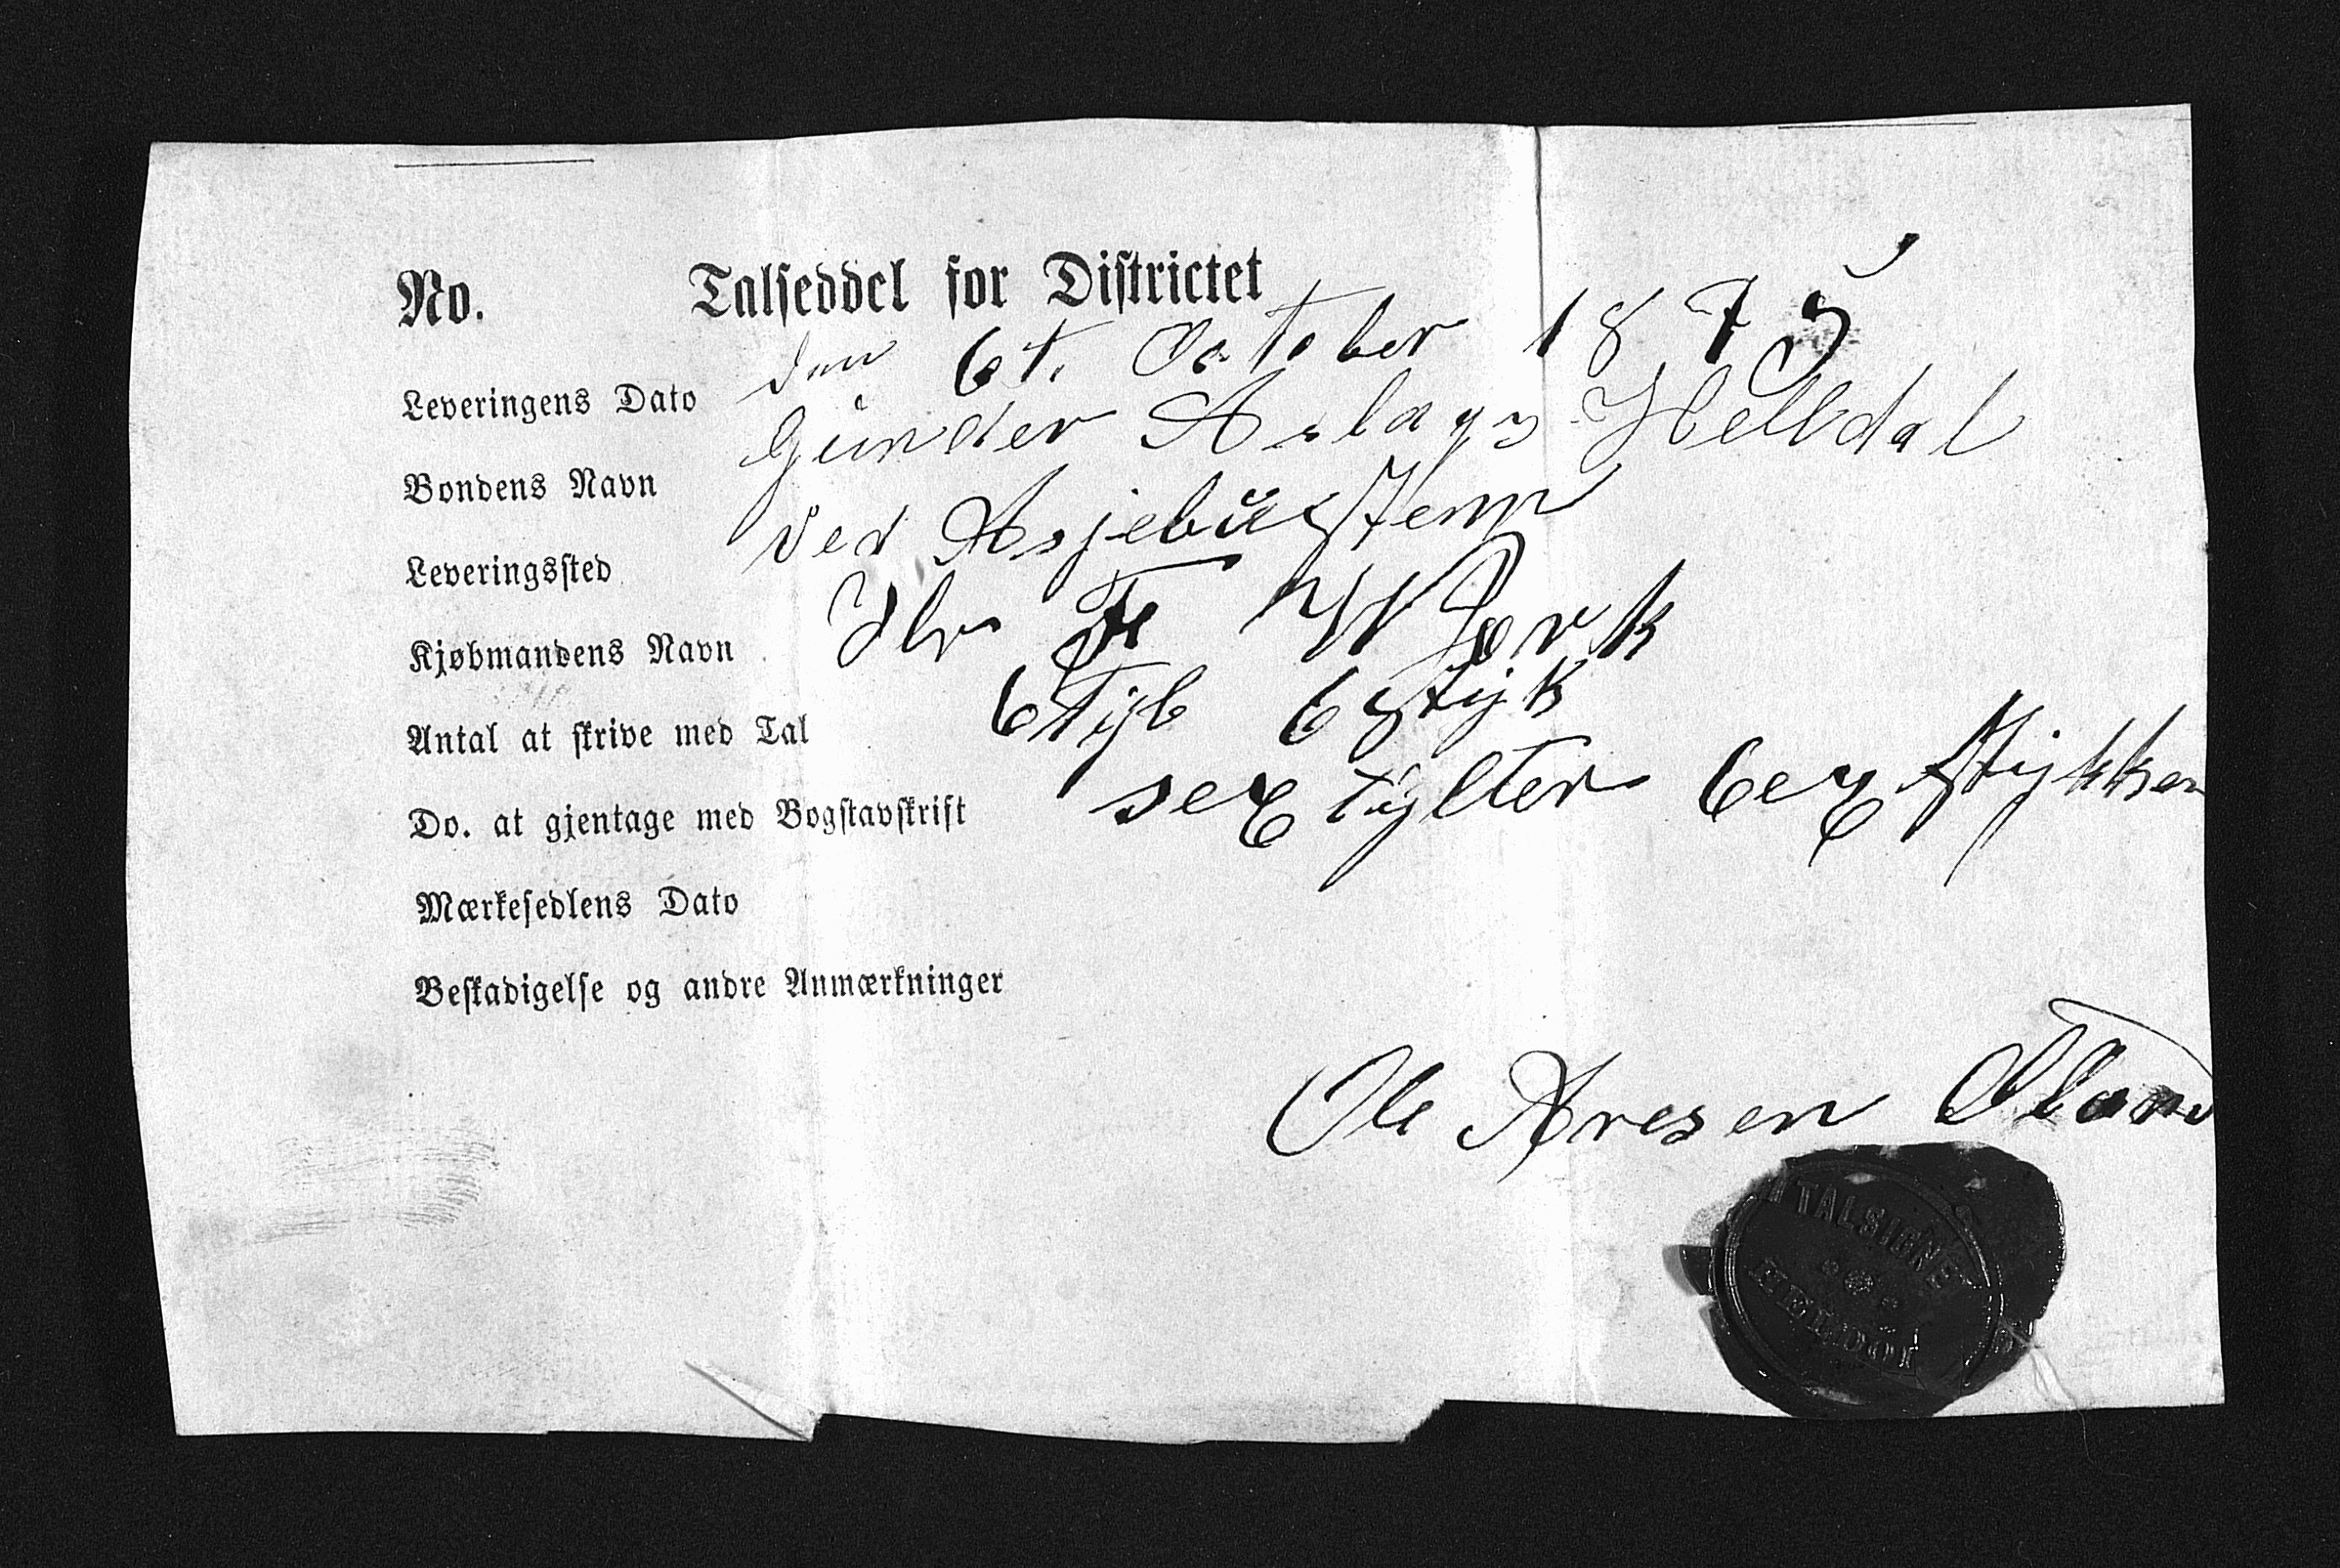 No. Talseddel for Districtet
Leveringens Dato den 6t. October 1875
Bondens Navn Gunder Aslags Helldal
Leveringssted ved Asjebu
Kjøbmandens Navn Hr
Antal at skrive med Tal 6 Tyl 6 Styk
Do. at gjentage med Bogstavskrift sex tylter 6ex Stykker
Mærkesedlens Dato
Beskadigelse og andre Anmærkninger
Ole Aresen
TALSIGNE